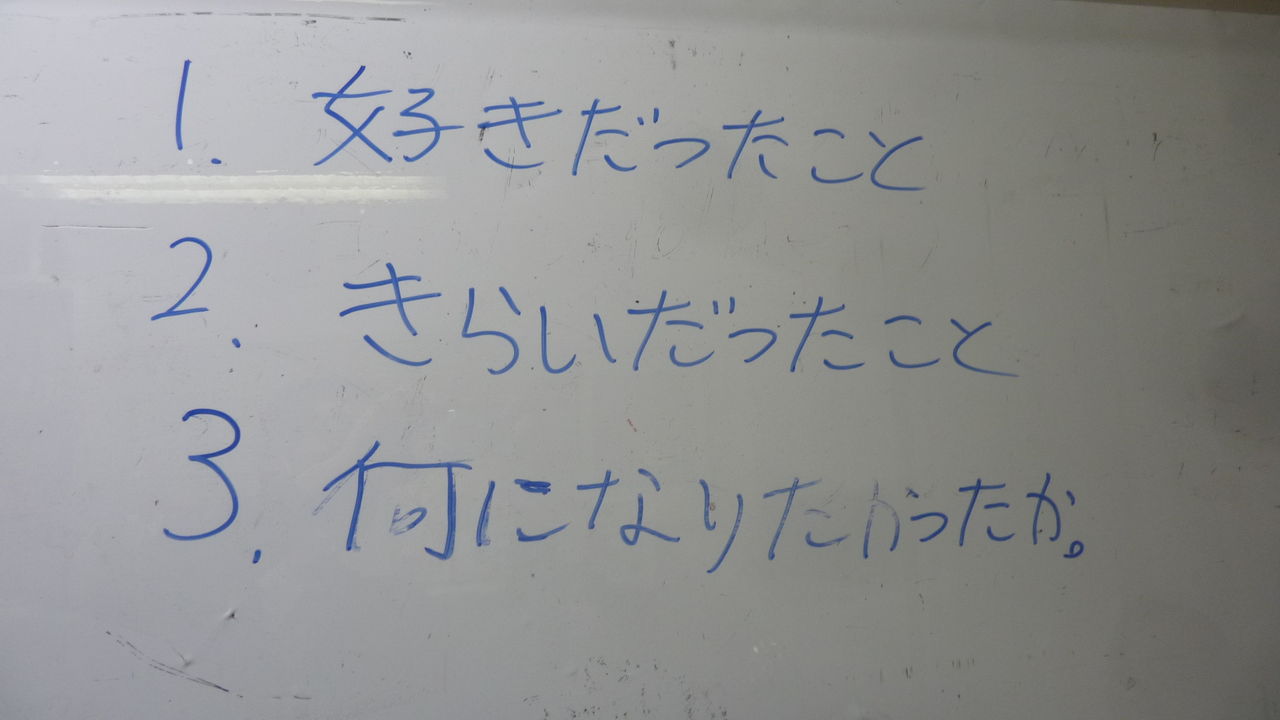 1. 好きだったこと
2. きらいだったこと
3. 何になりたかったか。